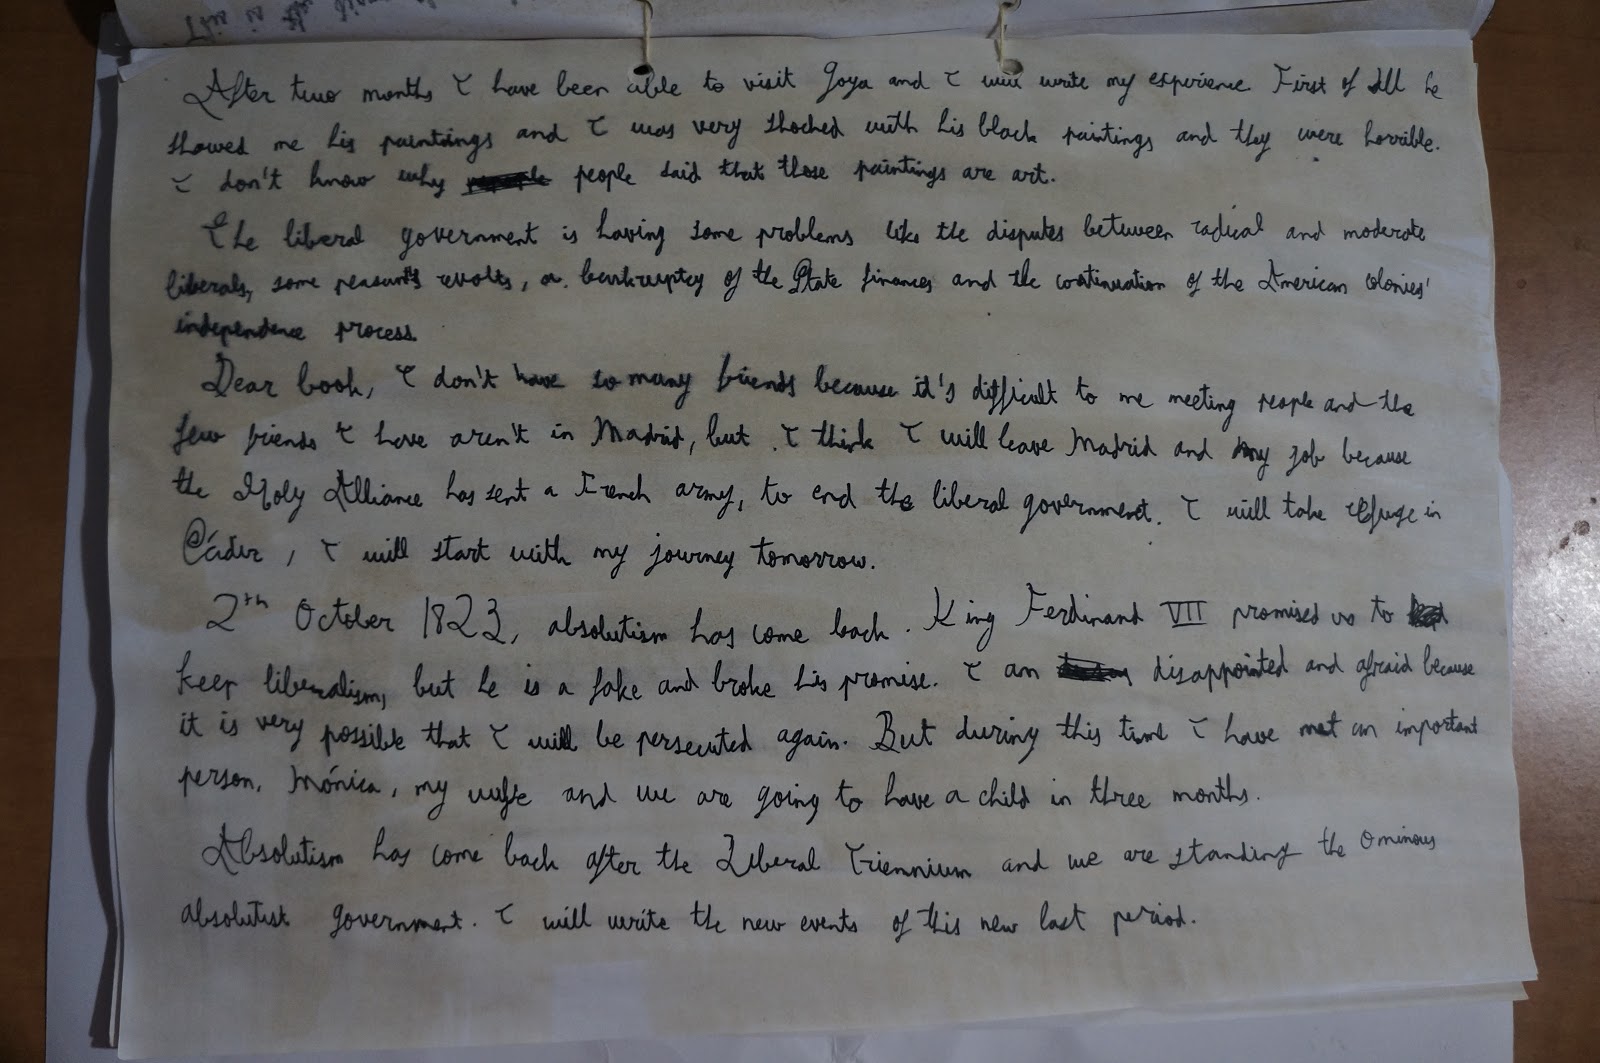 After two months I have been able to visit Goya and I will write my experience. First of All he
showed me his paintings and I was very shocked with his black paintings and they were horrible.
I don't know why people said that those paintings are art.
The liberal government is having some problems like the disputes between radical and moderate
liberals, some peasants revolts, a bankruptcy of the State finances and the continuation of the American colonies'
independence process.
Dear book, I don't have so many friends because it's difficult to me meeting people and the
few friends I have aren't in Madrid, but I think I will leave Madrid and my job because
the Holy Alliance has sent a French army, to end the liberal government. I will take refuge in
Cádiz, I will start with my journey tomorrow.
2th October 1823, absolutism has come back. King Ferdinand VII promised us to
keep liberalism, but he is a fake and broke his promise. I am disappointed and afraid because
it is very possible that I will be persecuted again. But during this time I have met an important
person, Mónica, my wife and we are going to have a child in three months.
Absolutism has come back after the Liberal Triennium and we are standing the Ominous
absolutist government. I will write the new events of this new last period.